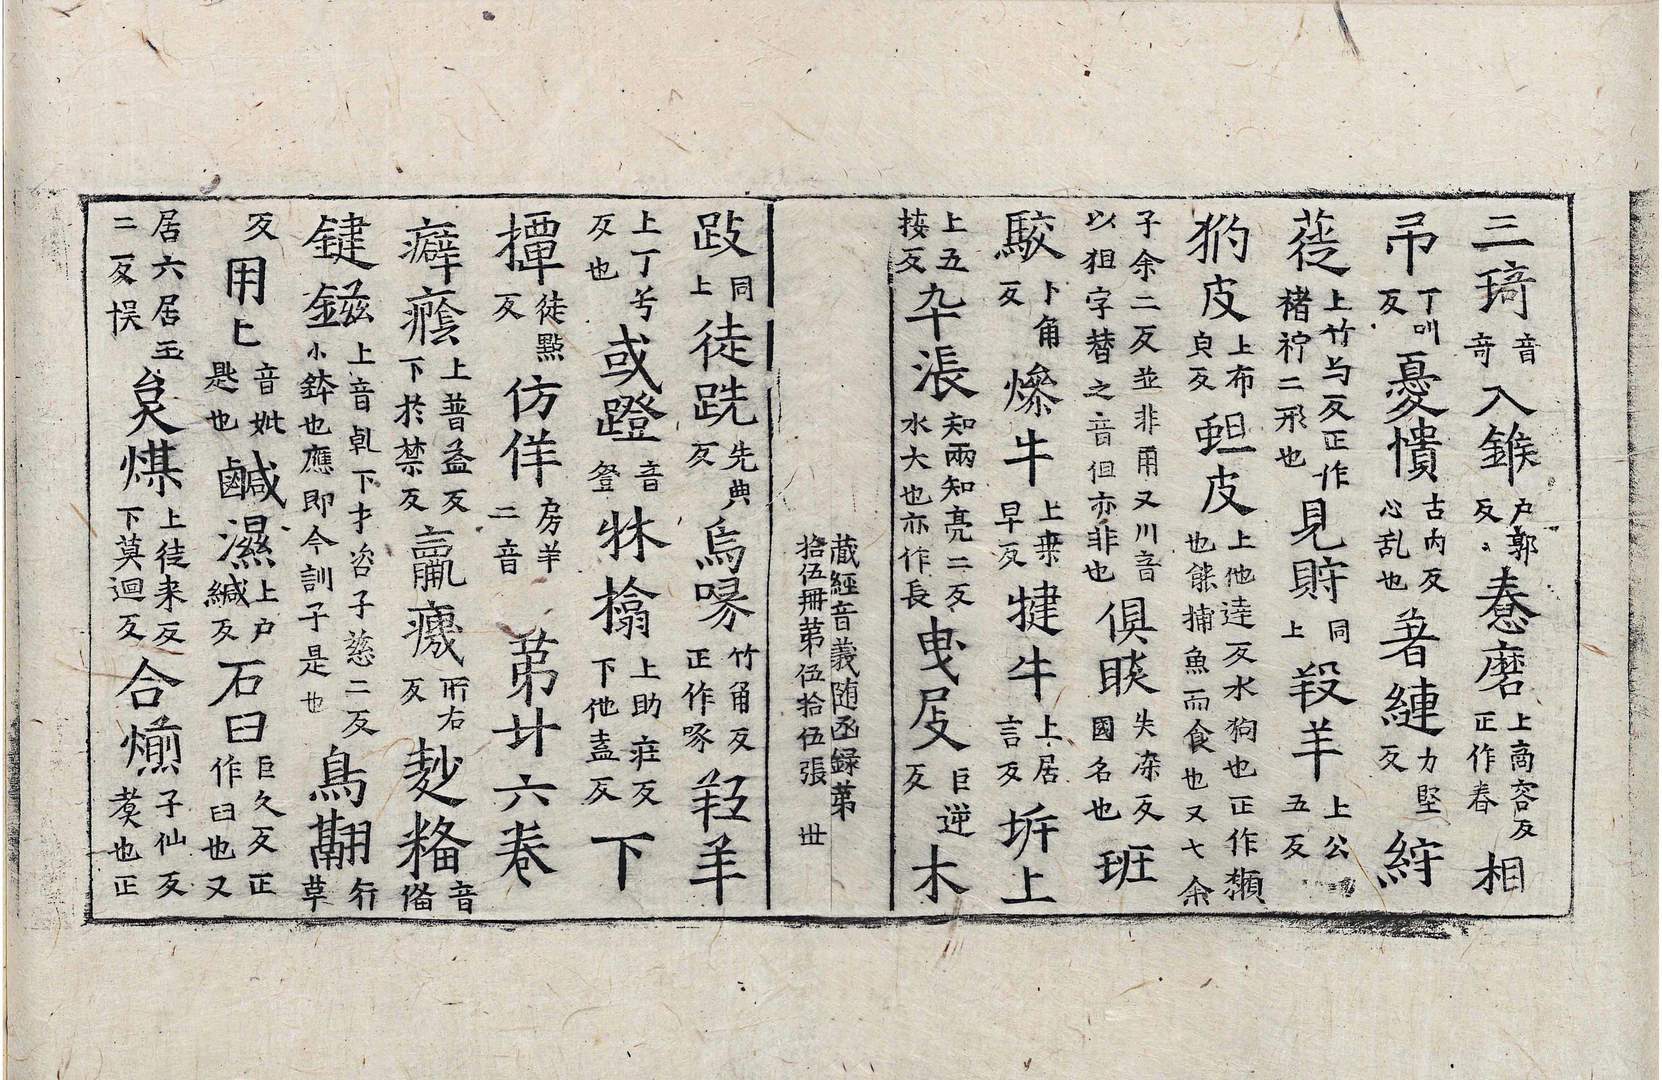 三琦音奇入鍭户郭反憃磨上商容反正作舂相
吊丁叫反憂憒古内反心乱也著縺力堅反紵
蓰上竹与反正作褚𥙷二形也見貯同上羖羊上公五反
犳皮上布皃反䖧皮上他達反水狗也正作獺也能捕魚而食也又七余
子余二反並非用又川音以狙字替之音但亦非也俱睒失染反國名也班
駮卜角反㸅牛上桒早反犍牛上居言反坼上
上五接反卆漲知兩知亮二反水大也亦作長曳屐巨逆反木
藏經音義随函録苐
拾伍冊苐伍拾伍張 世
跂同上徒跣先典反烏㖵竹角反正作啄羖羊
上丁兮反也或蹬音登牀搨上助疘反下他盍反下
撢徒點反仿佯房羊二音苐廿六卷
癖癊上普益反下於禁反羸瘦所右反麨粻音俻
鍵鎡上音乹下才咨子慈二反小鉢也應即今訓子是也鳥翮行草
反用匕音妣匙也鹹濕上户緘反石臼巨久反正作臼也又
居六居玉二反悮炱煤上徒来反下莫迴反合㷟子仙反𤎅也正